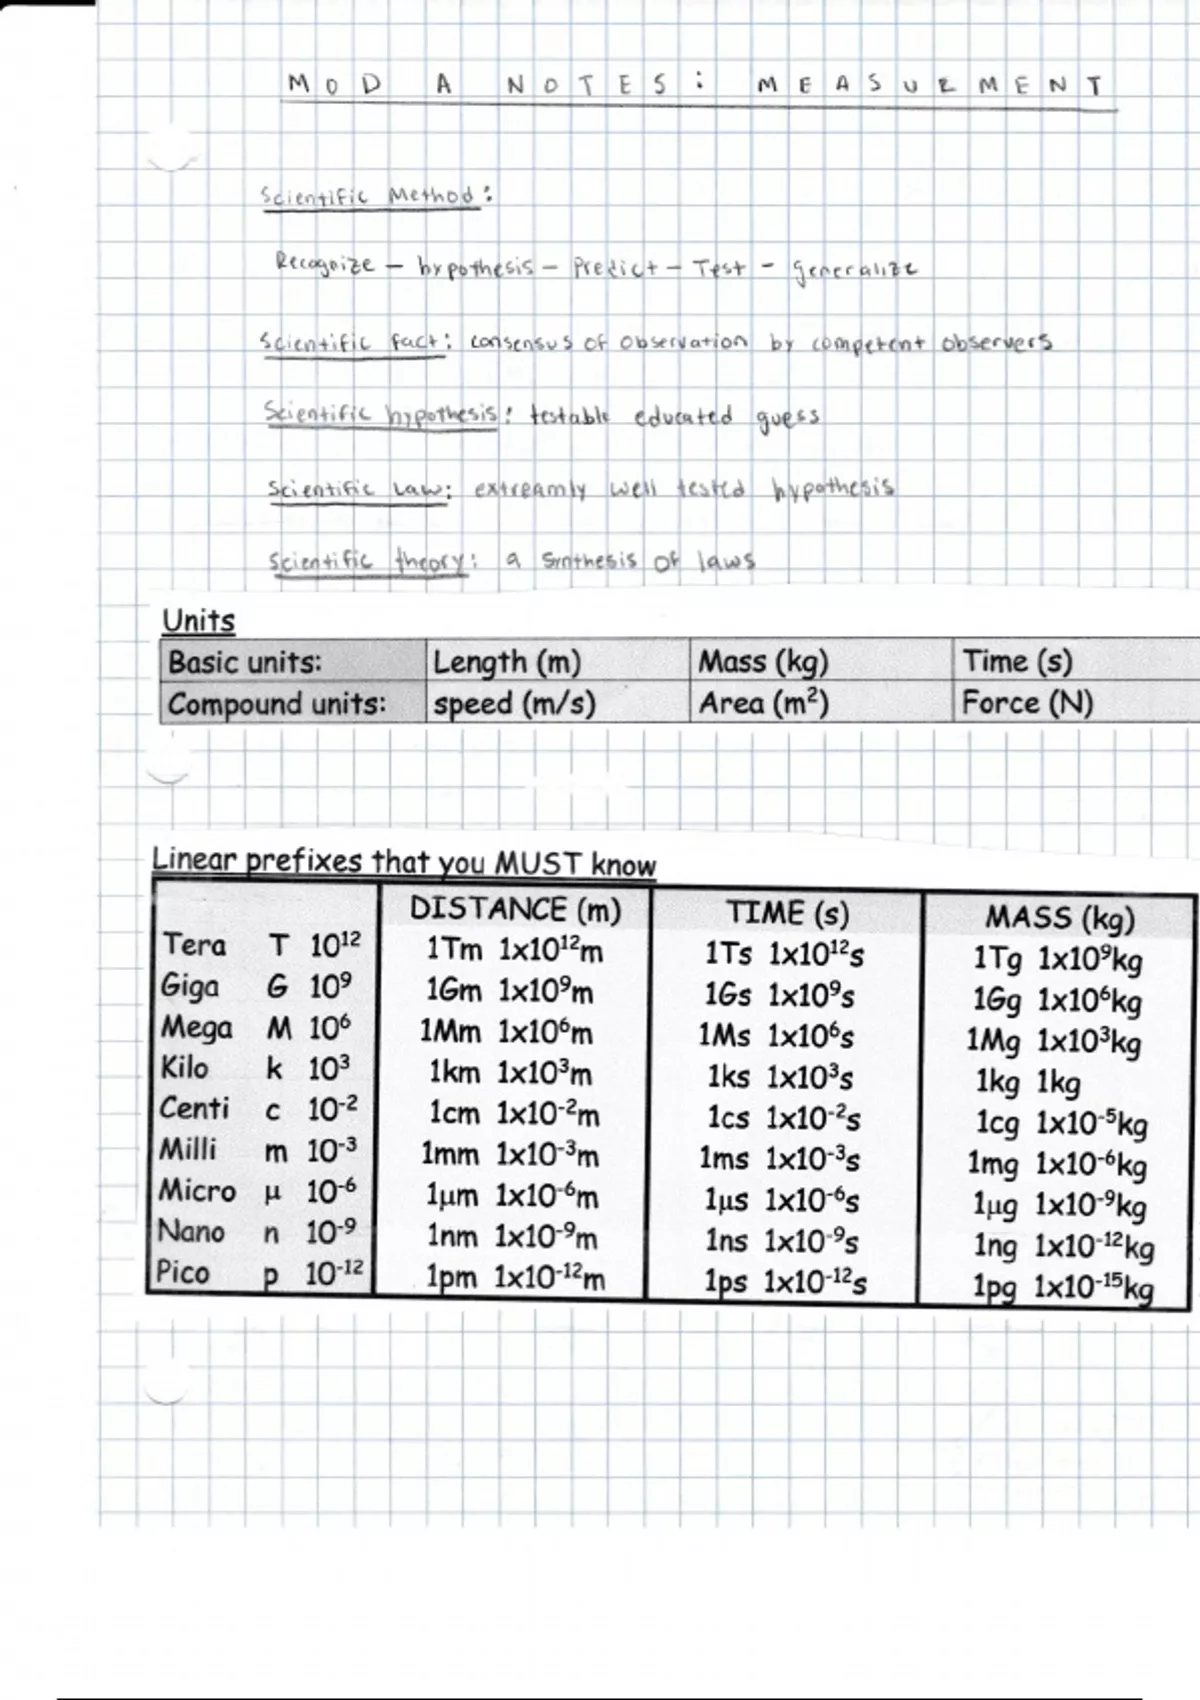 MOD A NOTES: MEASURMENT
Scientific Method:
Recognize - hypothesis - Predict - Test - generalize
Scientific fact: consensus of observation by competent observers
Scientific hypothesis: testable educated guess
Scientific Law: extreamly well tested hypothesis
Scientific theory: a synthesis of laws
Units
Basic units: Length (m) Mass (kg) Time (s)
Compound units: speed (m/s) Area (m²) Force (N)
Linear prefixes that you MUST know
DISTANCE (m) TIME (s) MASS (kg)
Tera T 10¹² 1Tm 1x10¹²m 1Ts 1x10¹²s 1Tg 1x10⁹kg
Giga G 10⁹ 1Gm 1x10⁹m 1Gs 1x10⁹s 1Gg 1x10⁶kg
Mega M 10⁶ 1Mm 1x10⁶m 1Ms 1x10⁶s 1Mg 1x10³kg
Kilo k 10³ 1km 1x10³m 1ks 1x10³s 1kg 1kg
Centi c 10⁻² 1cm 1x10⁻²m 1cs 1x10⁻²s 1cg 1x10⁻⁵kg
Milli m 10⁻³ 1mm 1x10⁻³m 1ms 1x10⁻³s 1mg 1x10⁻⁶kg
Micro μ 10⁻⁶ 1μm 1x10⁻⁶m 1μs 1x10⁻⁶s 1μg 1x10⁻⁹kg
Nano n 10⁻⁹ 1nm 1x10⁻⁹m 1ns 1x10⁻⁹s 1ng 1x10⁻¹²kg
Pico p 10⁻¹² 1pm 1x10⁻¹²m 1ps 1x10⁻¹²s 1pg 1x10⁻¹⁵kg